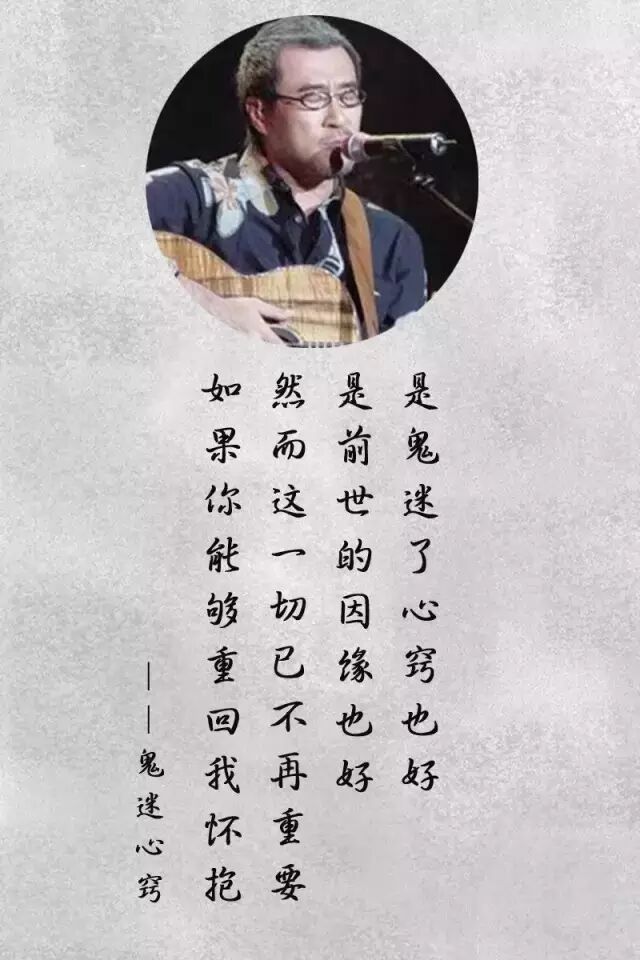 是鬼迷了心窍也好
是前世的因缘也好
然而这一切已不再重要
如果你能够重回我怀抱
——鬼迷心窍